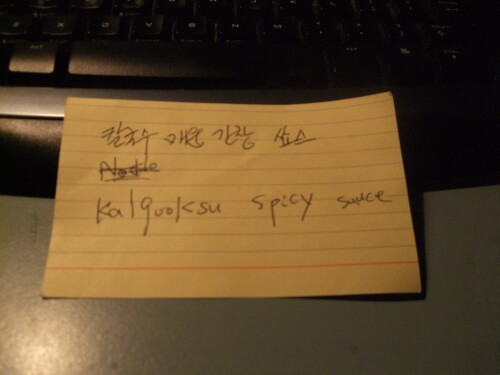 칼국수 매운 간장 쏘스
Noodle
Kalgooksu spicy sauce